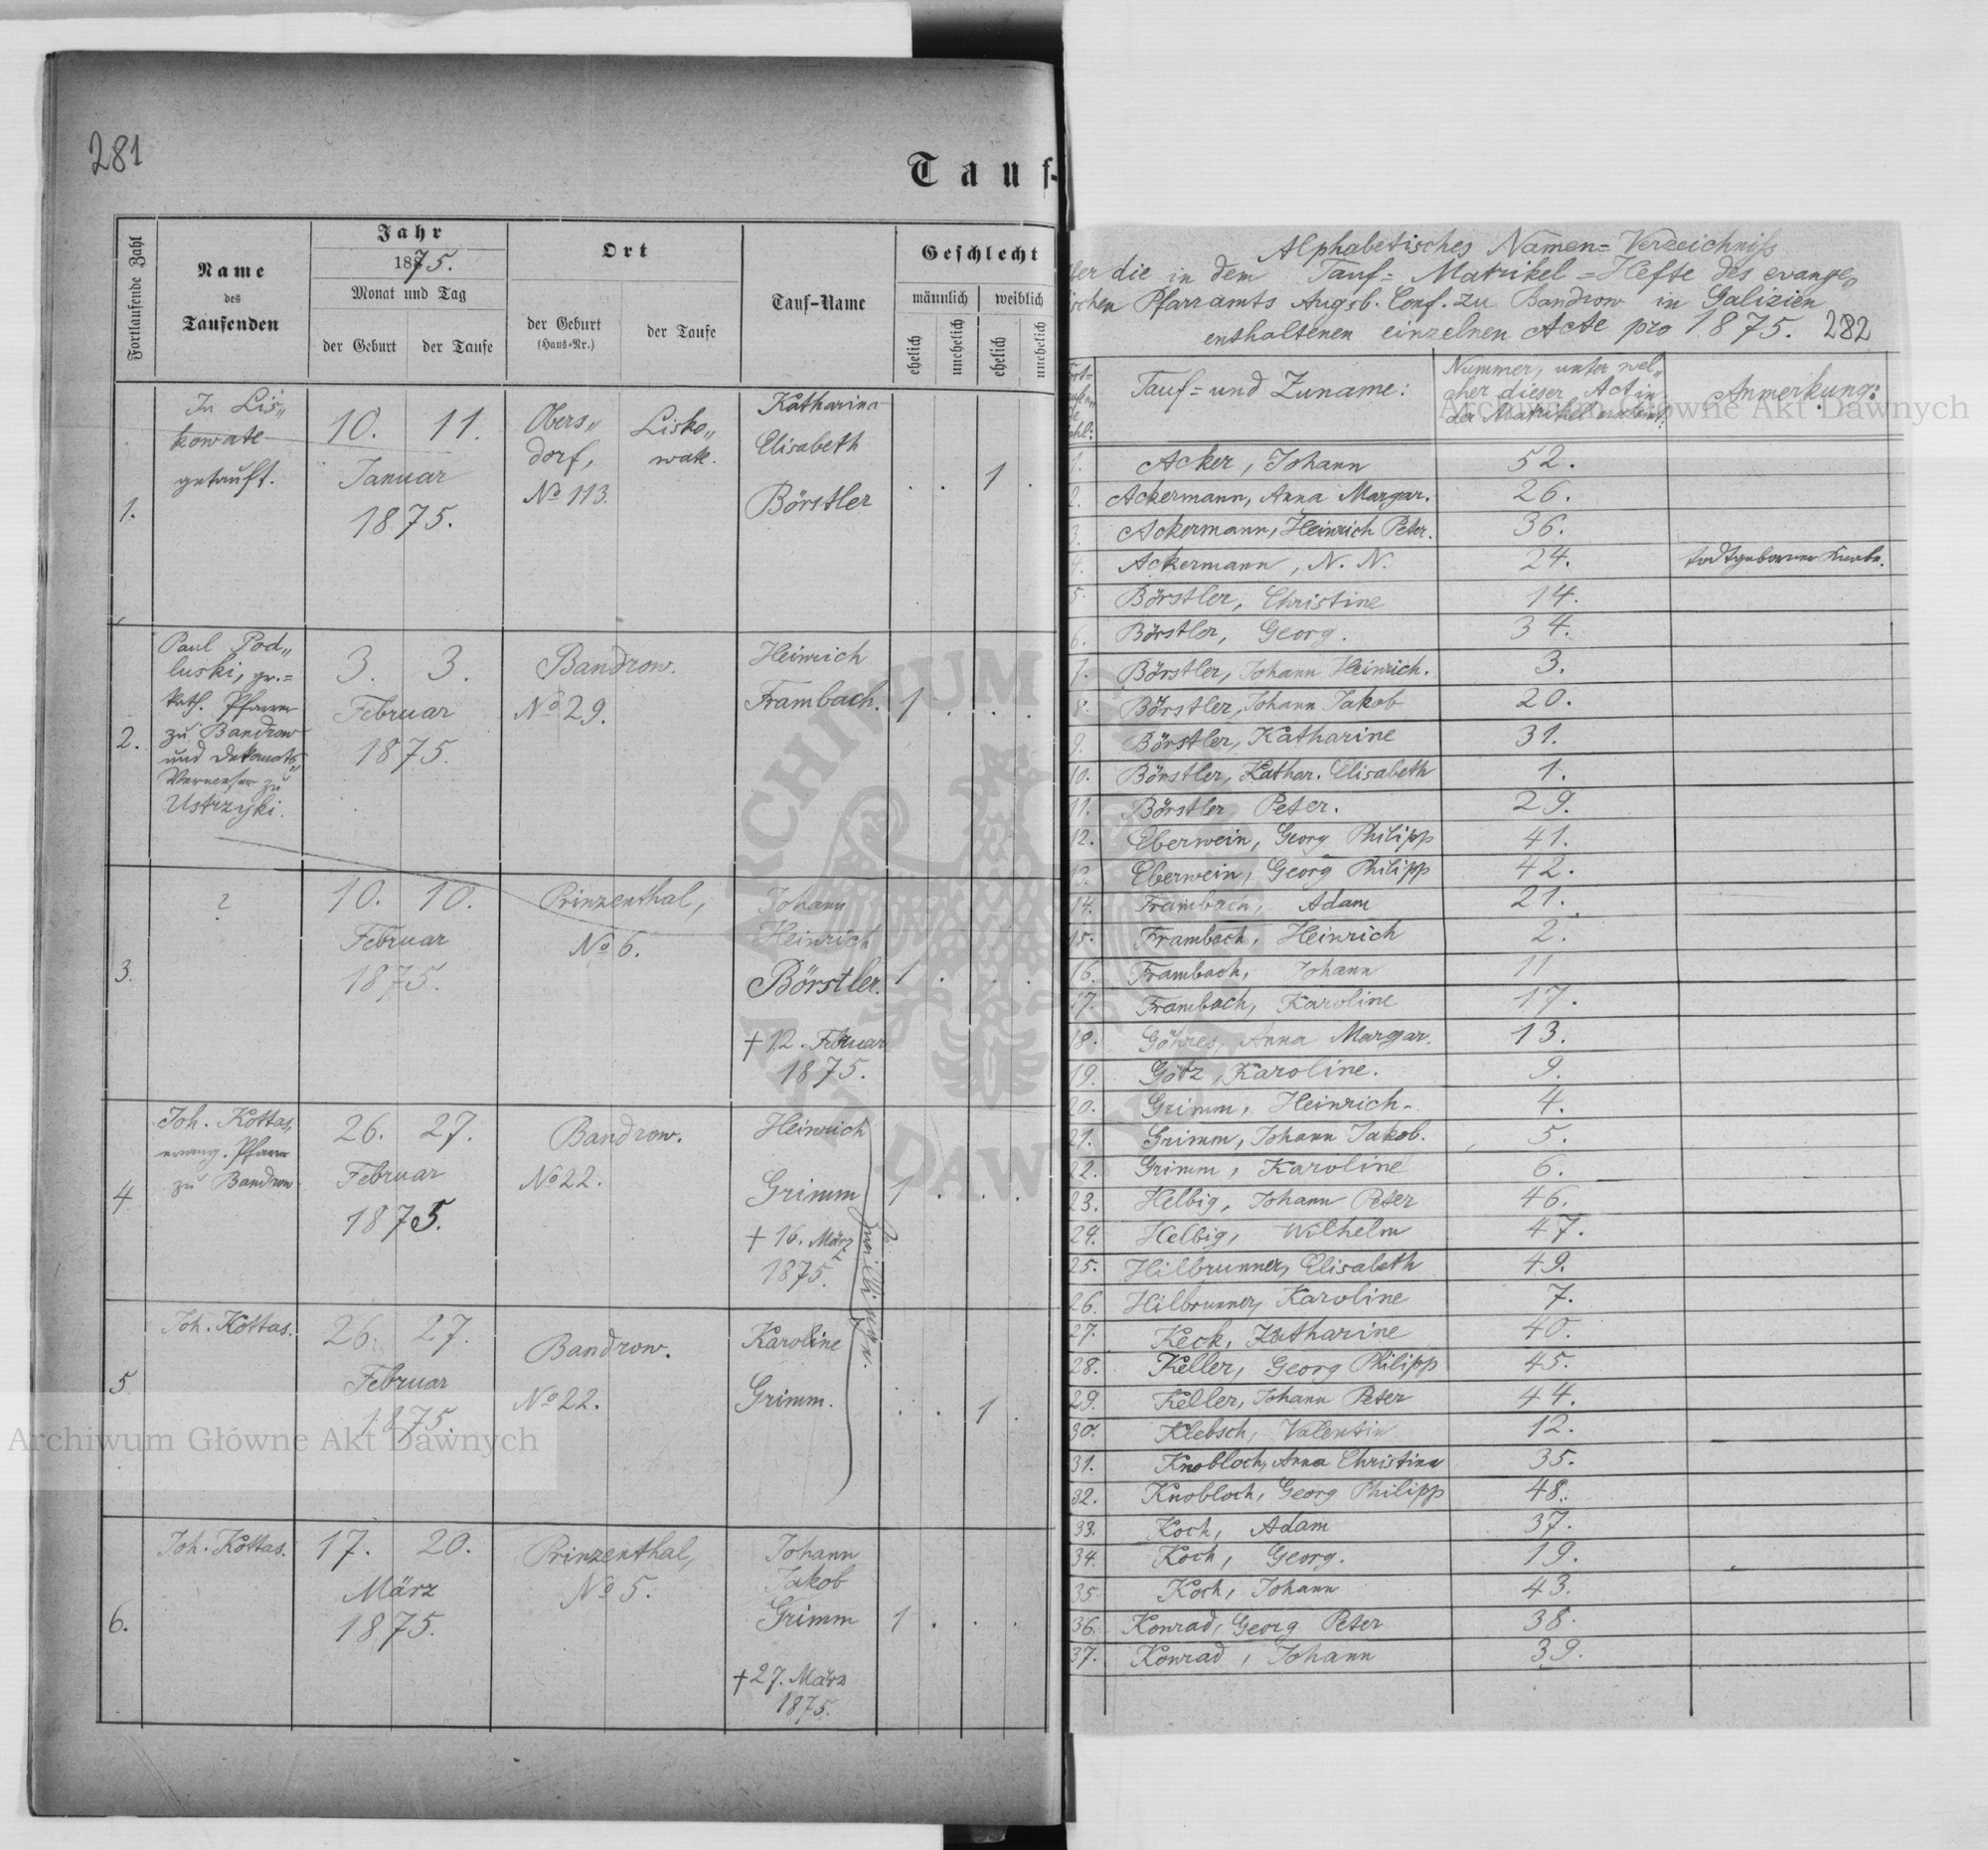 281
Tauf-
Fortlaufende Zahl
Name
des
Taufenden
Jahr
1875.
Monat und Tag
der Geburt
der Taufe
Ort
der Geburt
(Haus-Nr.)
der Taufe
Tauf-Name
Geschlecht
männlich
weiblich
ehelich
unehelich
ehelich
unehelich
1.
In Lis„
kowate
getauft.
10. 11.
Januar
1875.
Obers„
dorf,
No 113.
Lisko„
wate.
Katharina
Elisabeth
Börstler
. . 1 .
2.
Paul Pod„
luski, gr.=
kath. Pfarrer
zu Bandrow
und Dekanats„
Verweser zu
Ustrzyki.
3. 3.
Februar
1875.
Bandrow.
No 29.
Heinrich
Frambach.
1 . . .
3.
?
10. 10.
Februar
1875.
Prinzenthal,
No 6.
Johann
Heinrich
Börstler.
† 12. Februar
1875.
1 . . .
4
Joh. Kottas,
evang. Pfarrer
zu Bandrow
26. 27.
Februar
1875.
Bandrow.
No 22.
Heinrich
Grimm
† 16. März
1875.
1 . . .
Zwillinge.
5
Joh. Kottas.
26. 27.
Februar
1875.
Bandrow.
No 22.
Karoline
Grimm.
. . 1 .
6.
Joh. Kottas.
17. 20.
März
1875.
Prinzenthal,
No 5.
Johann
Jakob
Grimm
† 27. März
1875.
1 . . .
Alphabetisches Namen=Verzeichniß
die in dem Tauf=Matrikel=Hefte des evange„
schen Pfarramts Augsb. Conf. zu Bandrow in Galizien
enthaltenen einzelnen Acte pro 1875. 282
Tauf= und Zuname:
Nummer, unter wel„
cher dieser Act in
der Matrikel
Anmerkung:
1. Acker, Johann 52.
2. Ackermann, Anna Margar. 26.
3. Ackermann, Heinrich Peter. 36.
4. Ackermann, N. N. 24. todtgeborner Knabe.
5. Börstler, Christine 14.
6. Börstler, Georg. 34.
7. Börstler, Johann Heinrich. 3.
8. Börstler, Johann Jakob 20.
9. Börstler, Katharine 31.
10. Börstler, Kathar. Elisabeth 1.
11. Börstler Peter. 29.
12. Eberwein, Georg Philipp 41.
13. Eberwein, Georg Philipp 42.
14. Frambach, Adam 21.
15. Frambach, Heinrich 2.
16. Frambach, Johann 11
17. Frambach, Karoline 17.
18. Göhres, Anna Margar. 13.
19. Götz, Karoline. 9.
20. Grimm, Heinrich. 4.
21. Grimm, Johann Jakob. 5.
22. Grimm, Karoline 6.
23. Helbig, Johann Peter 46.
24. Helbig, Wilhelm 47.
25. Hilbrunner, Elisabeth 49.
26. Hilbrunner, Karoline 7.
27. Keck, Katharine 40.
28. Keller, Georg Philipp 45.
29. Keller, Johann Peter 44.
30. Klebsch, Valentin 12.
31. Knobloch, Anna Christina 35.
32. Knobloch, Georg Philipp 48.
33. Koch, Adam 37.
34. Koch, Georg. 19.
35. Koch, Johann 43.
36. Konrad, Georg Peter 38.
37. Konrad, Johann 39.
Archiwum Główne Akt Dawnych
Archiwum Główne Akt Dawnych